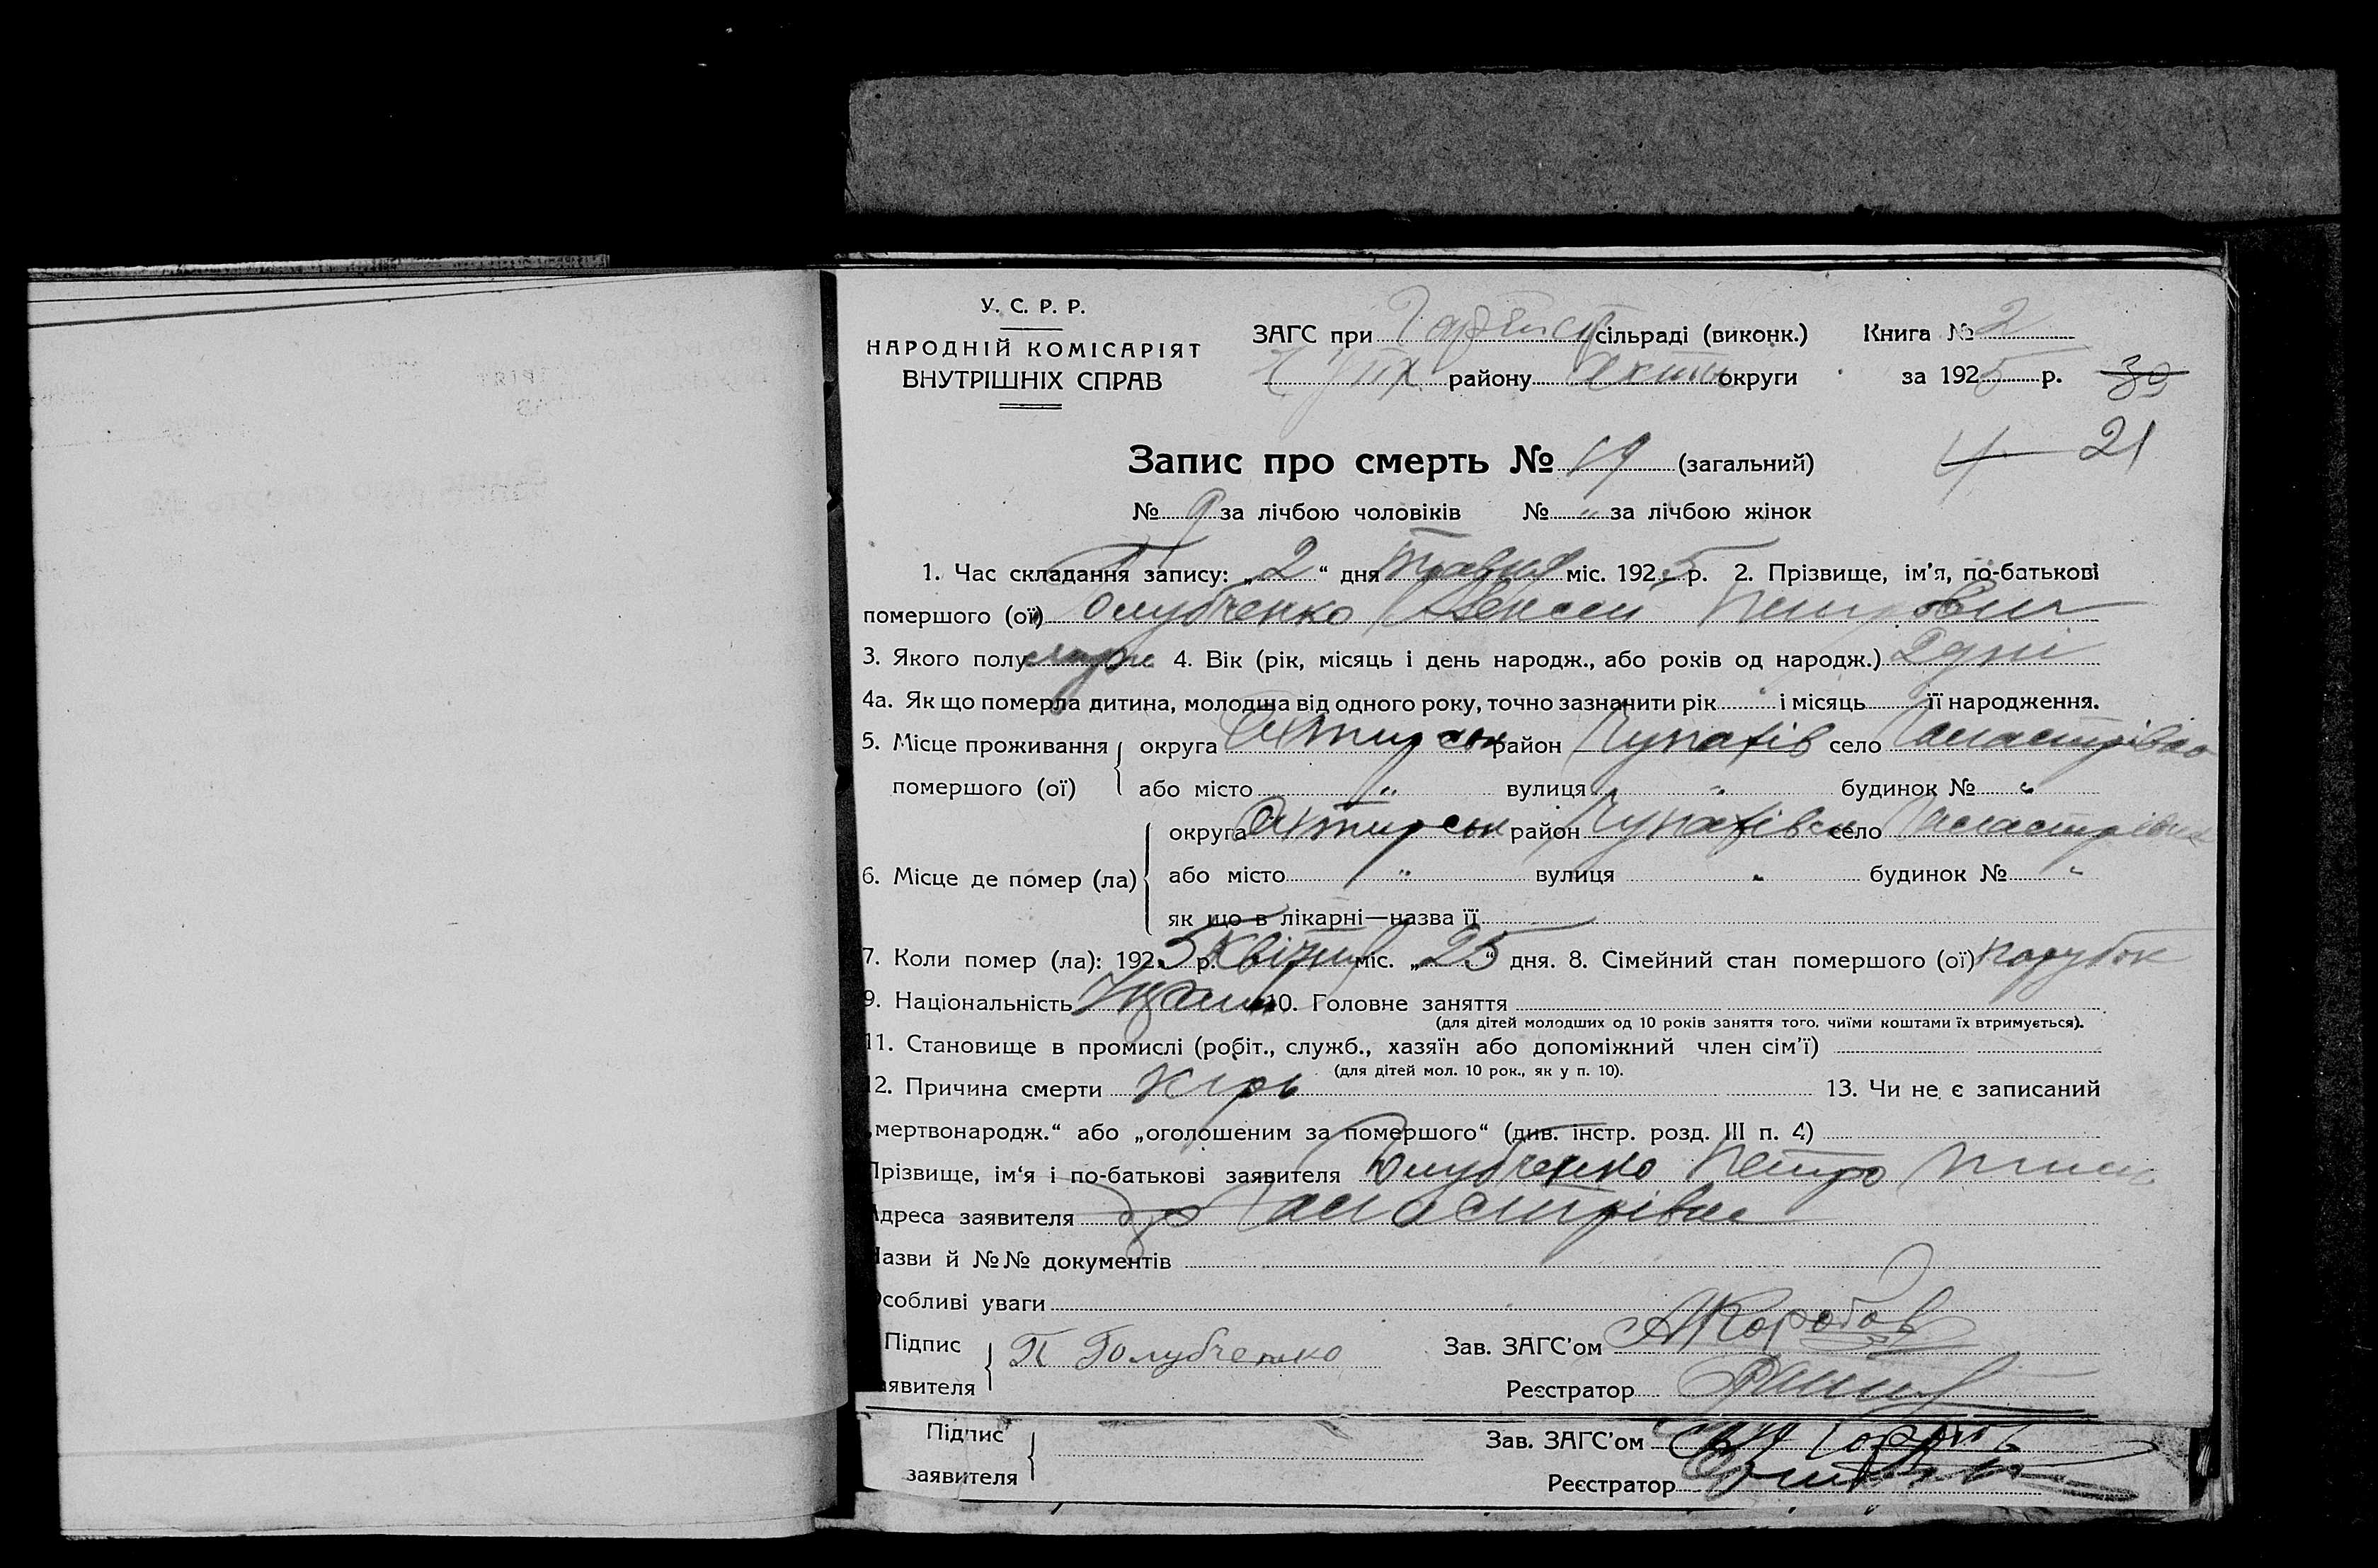 У. С. Р. Р.
НАРОДНІЙ КОМІСАРІЯТ
ВНУТРІШНІХ СПРАВ
ЗАГС при сільраді (виконк.) Книга № 2
району округи за 1925 р. 39
Запис про смерть № 19 (загальний) 4 21
№ 9 за лічбою чоловіків № „ за лічбою жінок
1. Час складання запису: „2“ дня травня міс. 1925 р. 2. Прізвище, ім'я, по-батькові
помершого (ої) Голубченко Олексей Петрович
3. Якого полу 4. Вік (рік, місяць і день народж., або років од народж.) 2 дні
4а. Як що померла дитина, молодша від одного року, точно зазначити рік і місяць її народження.
5. Місце проживання округа Охтирськ район Чупахів село
помершого (ої) або місто „ вулиця „ будинок № „
округа Охтирськ район Чупахівськ село
6. Місце де помер (ла) або місто „ вулиця „ будинок № „
як що в лікарні—назва її
7. Коли помер (ла): 1925 р. Квітня міс. „25“ дня. 8. Сімейний стан помершого (ої) парубок
9. Національність 10. Головне заняття
(для дітей молодших од 10 років заняття того, чиїми коштами їх втримується).
11. Становище в промислі (робіт., служб., хазяїн або допоміжний член сім'ї)
(для дітей мол. 10 рок., як у п. 10).
12. Причина смерти кір 13. Чи не є записаний
„мертвонародж.“ або „оголошеним за помершого“ (див. інстр. розд. III п. 4)
Прізвище, ім'я і по-батькові заявителя Голубченко Петро
Адреса заявителя
Назви й №№ документів
Особливі уваги
Підпис П Голубченко Зав. ЗАГС'ом АКоробов
заявителя Реєстратор
Підпис Зав. ЗАГС'ом
заявителя Реєстратор